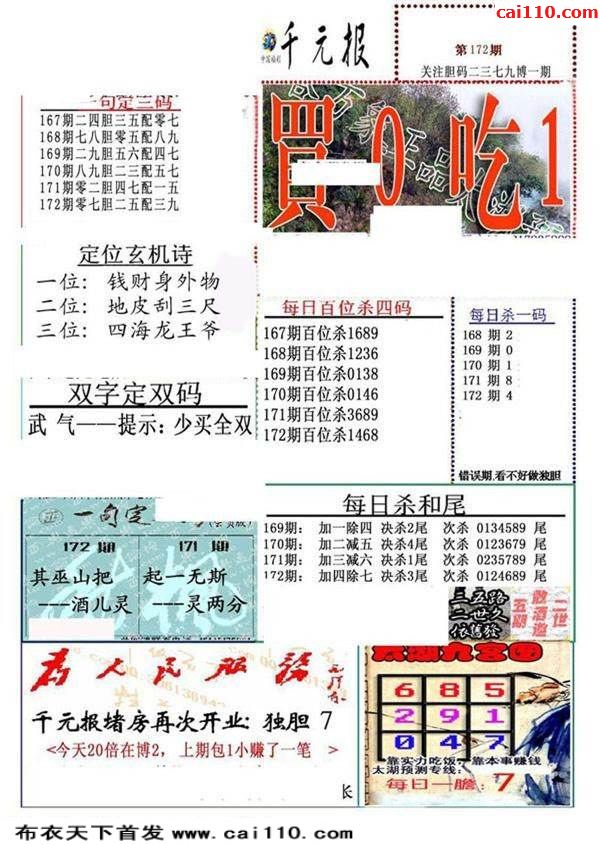 cai110.com
千元报
第172期
关注胆码二三七九博一期
一句定三码
167期二四胆三五配零七
168期七八胆零五配八九
169期二九胆五六配四七
170期八九胆二三配五七
171期零二胆四七配一五
172期零七胆二五配三九
買0吃1
定位玄机诗
一位: 钱财身外物
二位: 地皮刮三尺
三位: 四海龙王爷
每日百位杀四码
167期百位杀1689
168期百位杀1236
169期百位杀0138
170期百位杀0146
171期百位杀3689
172期百位杀1468
每日杀一码
168 期 2
169 期 0
170 期 1
171 期 8
172 期 4
错误期,看不好做独胆
双字定双码
武 气——提示: 少买全双
每日杀和尾
169期: 加一除四 决杀2尾 次杀 0134589 尾
170期: 加二减五 决杀4尾 次杀 0123679 尾
171期: 加三减六 决杀1尾 次杀 0235789 尾
172期: 加四除七 决杀3尾 次杀 0124689 尾
一句定
172 期
其巫山把
---酒儿灵
171 期
起一无斯
---灵两分
三五路
二世久
依旧发
散酒邀
二世
五期
为人民服务
千元报堵房再次开业: 独胆 7
<今天20倍在博2, 上期包1小赚了一笔 >
长
太湖九宫图
6 8 5
2 9 1
0 4 7
靠实力吃饭, 靠本事赚钱
太湖预测专线:
每日一胆: 7
布衣天下首发 www.cai110.com